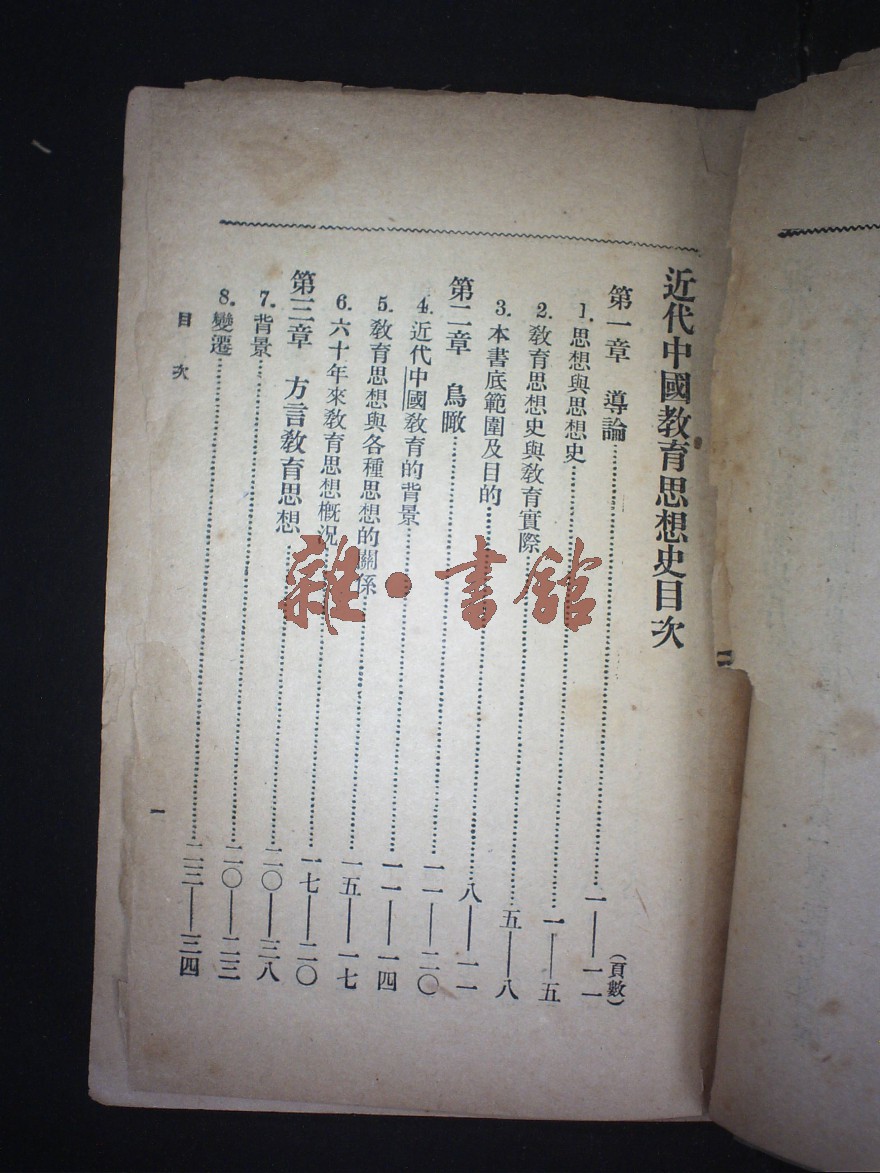 近代中國教育思想史目次
(頁數)
第一章 導論……一——一一
1. 思想與思想史……一——五
2. 教育思想史與教育實際……五——八
3. 本書底範圍及目的……八——一一
第二章 鳥瞰……一一——二〇
4. 近代中國教育的背景……一一——一四
5. 教育思想與各種思想的關係……一五——一七
6. 六十年來教育思想概況……一七——二〇
第三章 方言教育思想……二〇——三八
7. 背景……二〇——二三
8. 變遷……二三——三四
目次
一
雜·書館